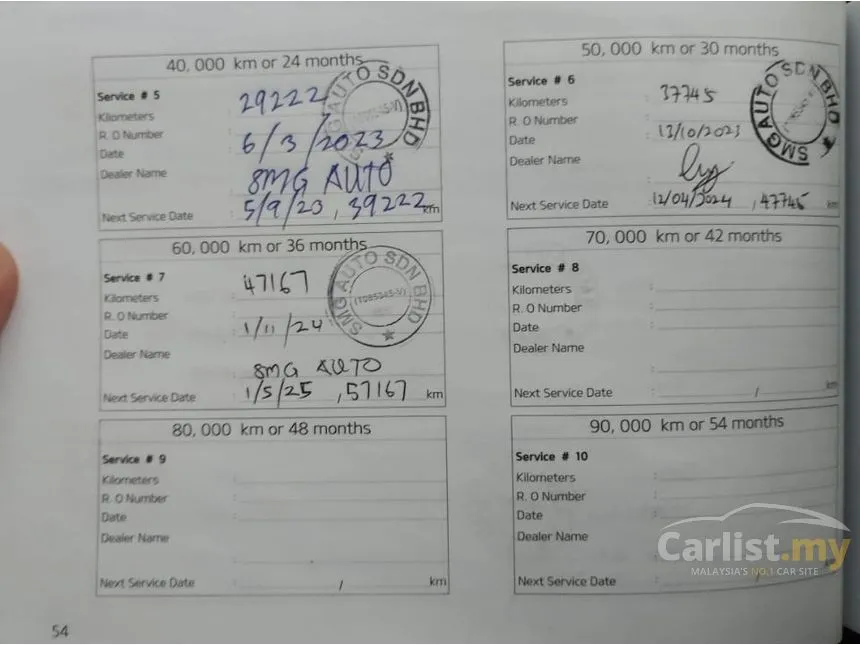 40, 000 km or 24 months
Service # 5
Kilometers : 29222
R. O Number :
Date : 6/3/2023
Dealer Name
SMG AUTO
Next Service Date : 5/9/23 , 39222 km
SMG AUTO SDN BHD
50, 000 km or 30 months
Service # 6
Kilometers : 37745
R. O Number :
Date : 13/10/2023
Dealer Name
Next Service Date : 12/04/2024 , 47745 km
SMG AUTO SDN BHD
60, 000 km or 36 months
Service # 7
Kilometers : 47167
R. O Number :
Date : 1/11/24
Dealer Name
SMG AUTO
Next Service Date : 1/5/25 , 57167 km
SMG AUTO SDN BHD
70, 000 km or 42 months
Service # 8
Kilometers :
R. O Number :
Date :
Dealer Name
Next Service Date : / km
80, 000 km or 48 months
Service # 9
Kilometers :
R. O Number :
Date :
Dealer Name
Next Service Date : / km
90, 000 km or 54 months
Service # 10
Kilometers :
R. O Number :
Date :
Dealer Name
Next Service Date : /
54
Carlist.my
MALAYSIA'S NO.1 CAR SITE